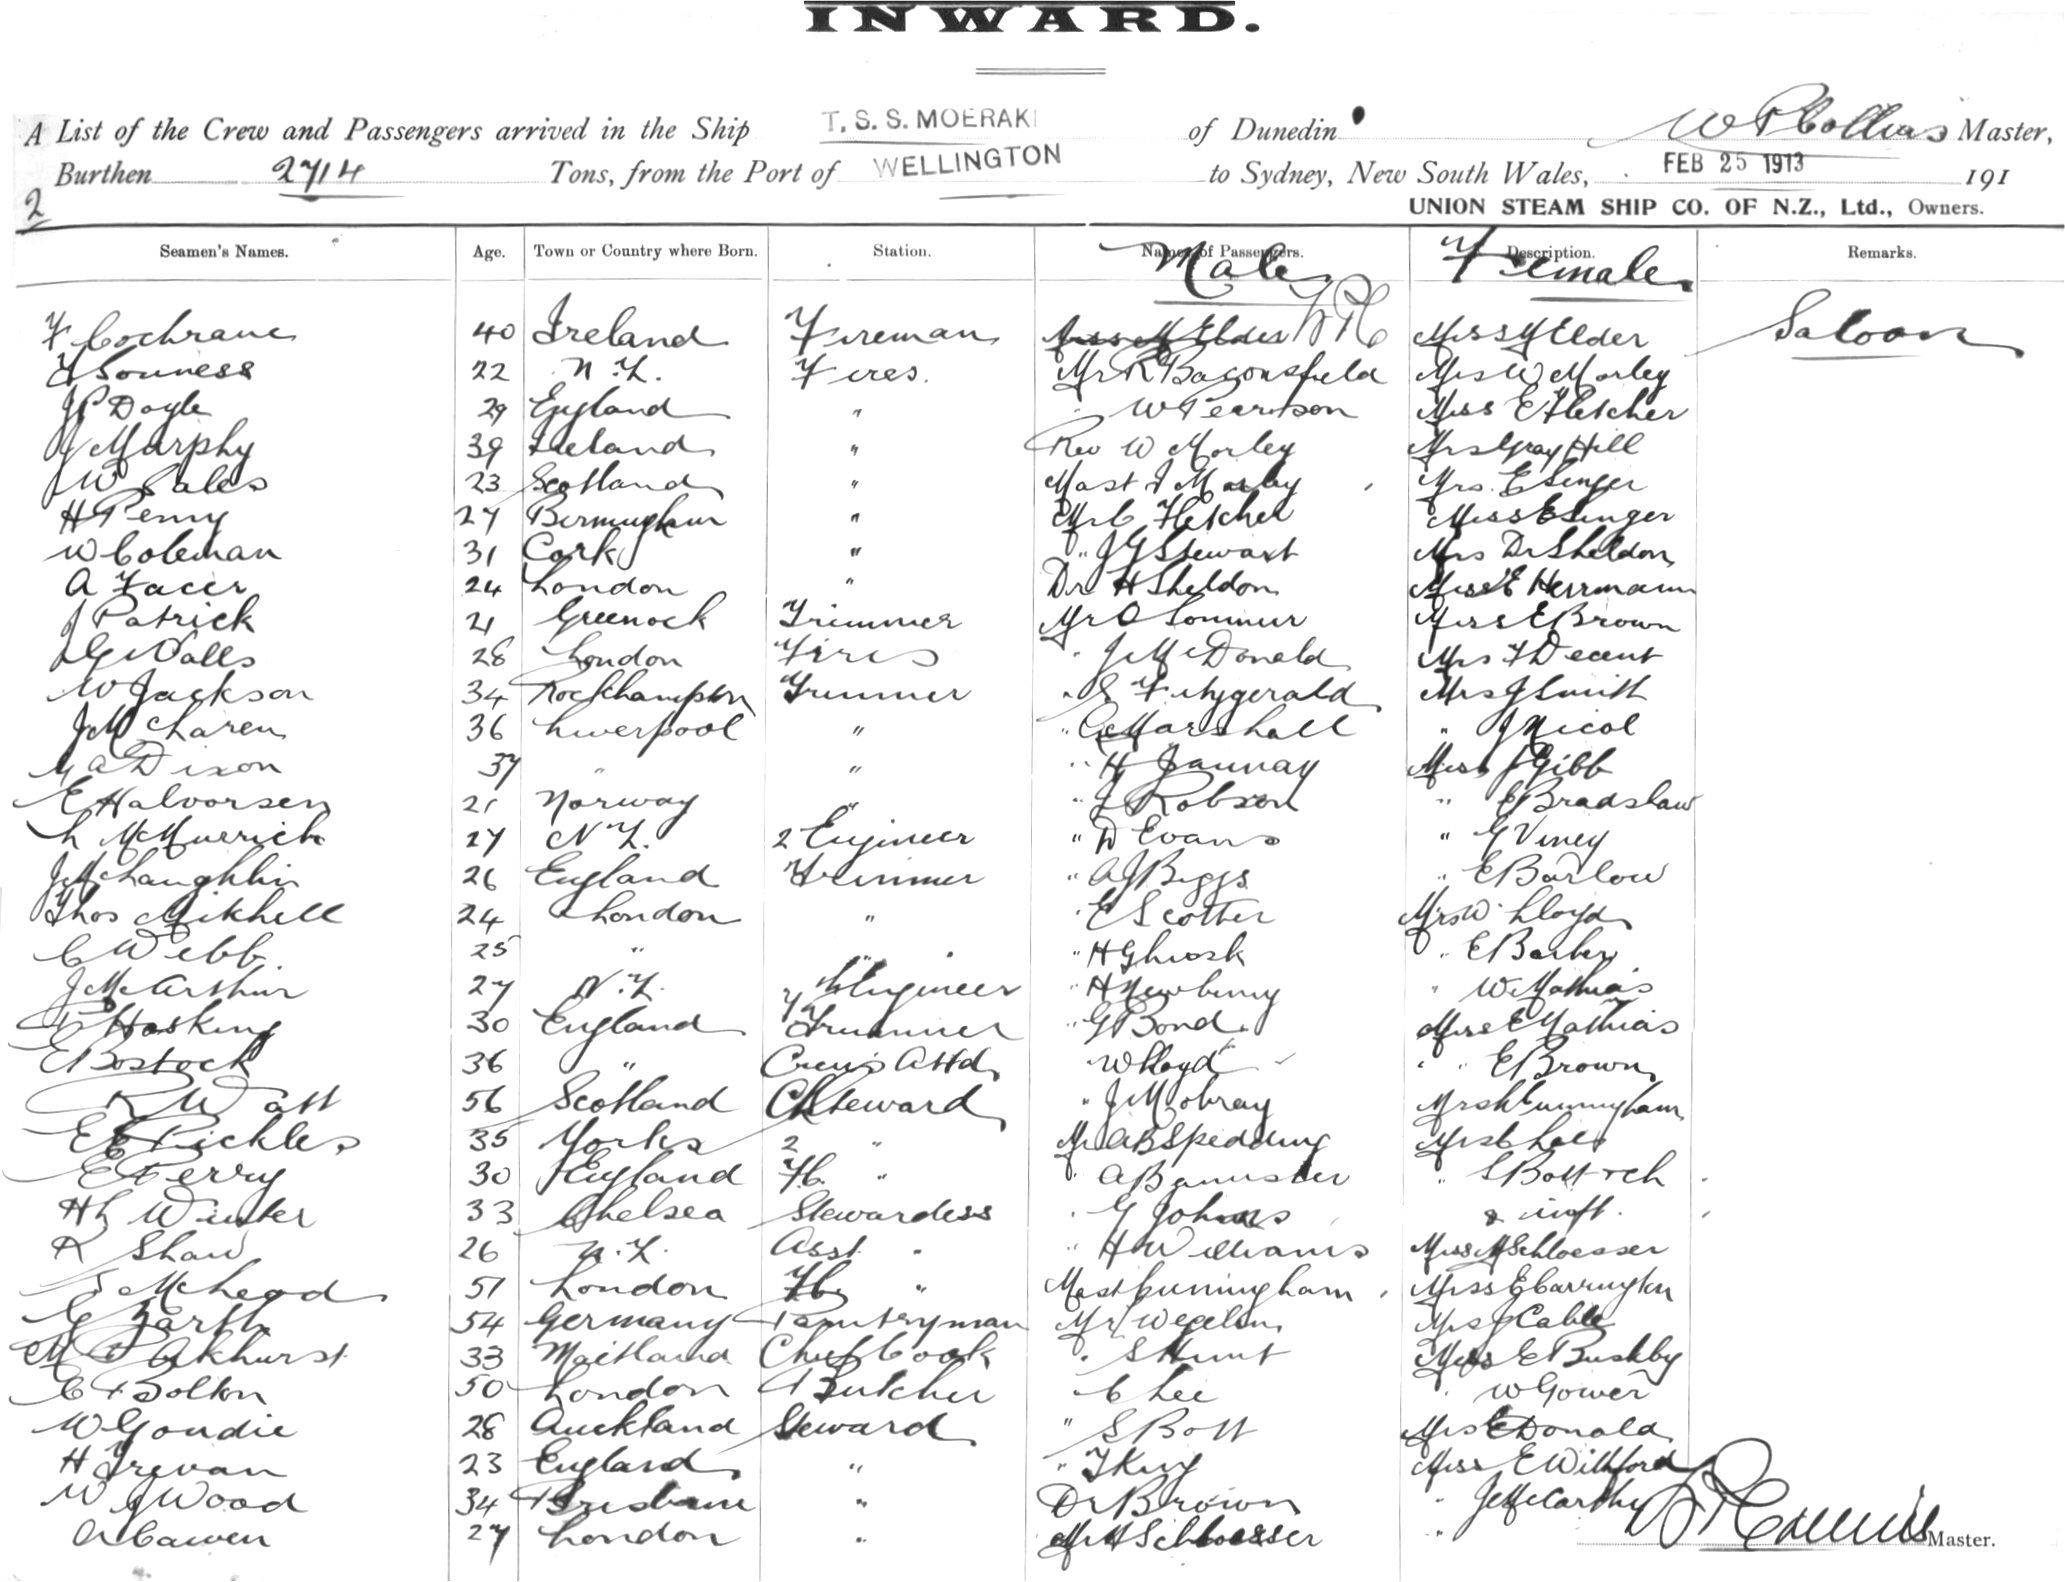 INWARD.
A List of the Crew and Passengers arrived in the Ship T. S. S. MOERAKI of Dunedin W P Collins Master,
Burthen 2714 Tons, from the Port of WELLINGTON to Sydney, New South Wales, FEB 25 1913 191
2
UNION STEAM SHIP CO. OF N.Z., Ltd., Owners.
Seamen's Names. Age. Town or Country where Born. Station. Names of Passengers. Description. Remarks.
Male Female
F Cochrane 40 Ireland Fireman Miss M Elder Miss M Elder Saloon
Souness 22 N.Z. Fires. Mr R Baconsfield Mrs W Morley
J P Doyle 29 England " " W Pearson Miss E Fletcher
J Murphy 39 Ireland " Rev W Morley Mrs Gray Hill
J W Sales 23 Scotland " Mast Morley Mrs. E Senger
H Penny 27 Birmingham " Mr C Fletcher Miss E Singer
W Coleman 31 Cork " " J G Stewart Mrs Dr Sheldon
A Facer 24 London " Dr H Sheldon Miss E Herrmann
J Patrick 21 Greenock Trimmer Mr O Sommer Miss E Brown
Walls 28 London Fires " J McDonald Mrs F Decent
W Jackson 34 Rockhampton Trimmer " S Fitzgerald Mrs J Smith
J McLaren 36 Liverpool " " C Marshall " J Nicol
A Dixon 37 " " " H Jaunay Miss J Gibb
E Halvorsen 21 Norway " " Robson " E Bradshaw
L McMurrich 27 N.Z. 2 Engineer " D Evans " G Viney
J McLaughlin 26 England Trimmer " A J Biggs " E Barlow
Thos Mikhell 24 London " " E Scotter Mrs W Lloyd
C Webb 25 " " " H G " E Barber
J McArthur 27 N.Z. Engineer " H Newberry " W Mathias
Hosking 30 England Trimmer " G Bond Miss E Mathias
E Bostock 36 " Crew's Attd " W Lloyd " " E Brown
R Watt 56 Scotland Ch Steward " J Mobray Mrs Cunningham
E E Pickles 35 Yorks 2 " Mr A B Spedding Mrs C
E Perry 30 England F.C. " " A Bannister " S Bott + ch
H L Winter 33 Chelsea Stewardess " G Johns & inft.
R Shaw 26 N.Z. Asst. " " H Williams Miss M Schloesser
S McLeod 51 London " Mast Cunningham Miss E Carrington
Barth 54 Germany Pantryman Mr Mrs J Cable
M Akhurst 33 Maitland Chief Cook " S Hunt Miss E Bushby
C Bolton 50 London Butcher " C Lee " W Gower
W Goudie 28 Auckland Steward " S Bott Mrs E Donald
H Trevan 23 England " " T King Miss E Withford
W J Wood 34 Brisbane " Dr Brown " J McCarthy
A Cawen 27 London " Mr H Schloesser "
Master.